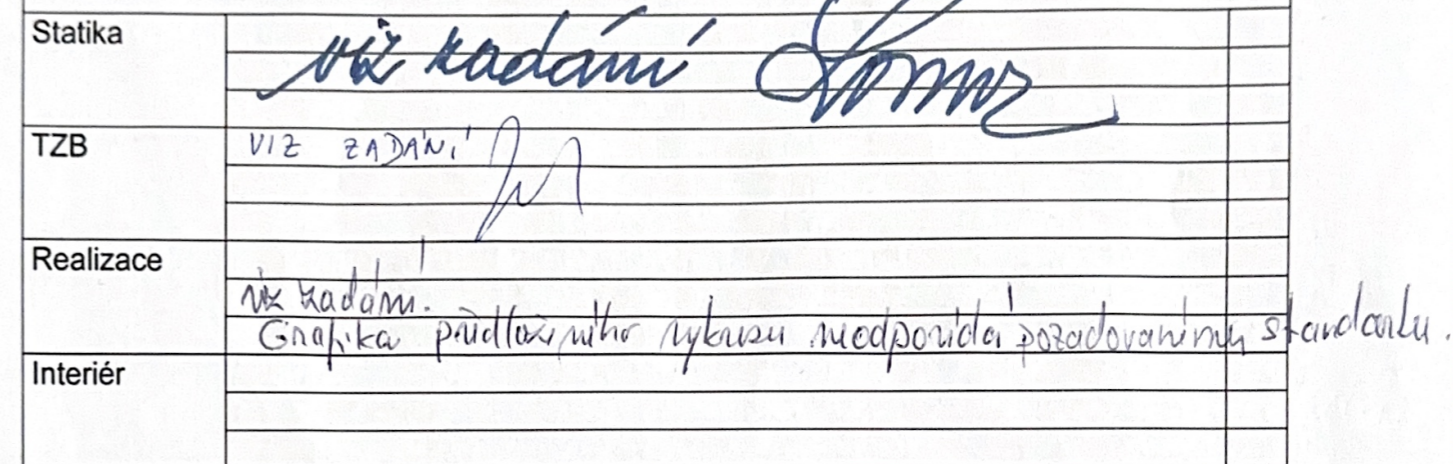 Statika
viz zadání
TZB
VIZ ZADÁNÍ
Realizace
viz zadání.
Grafika předloženého výkresu neodpovídá požadovanému standardu.
Interiér